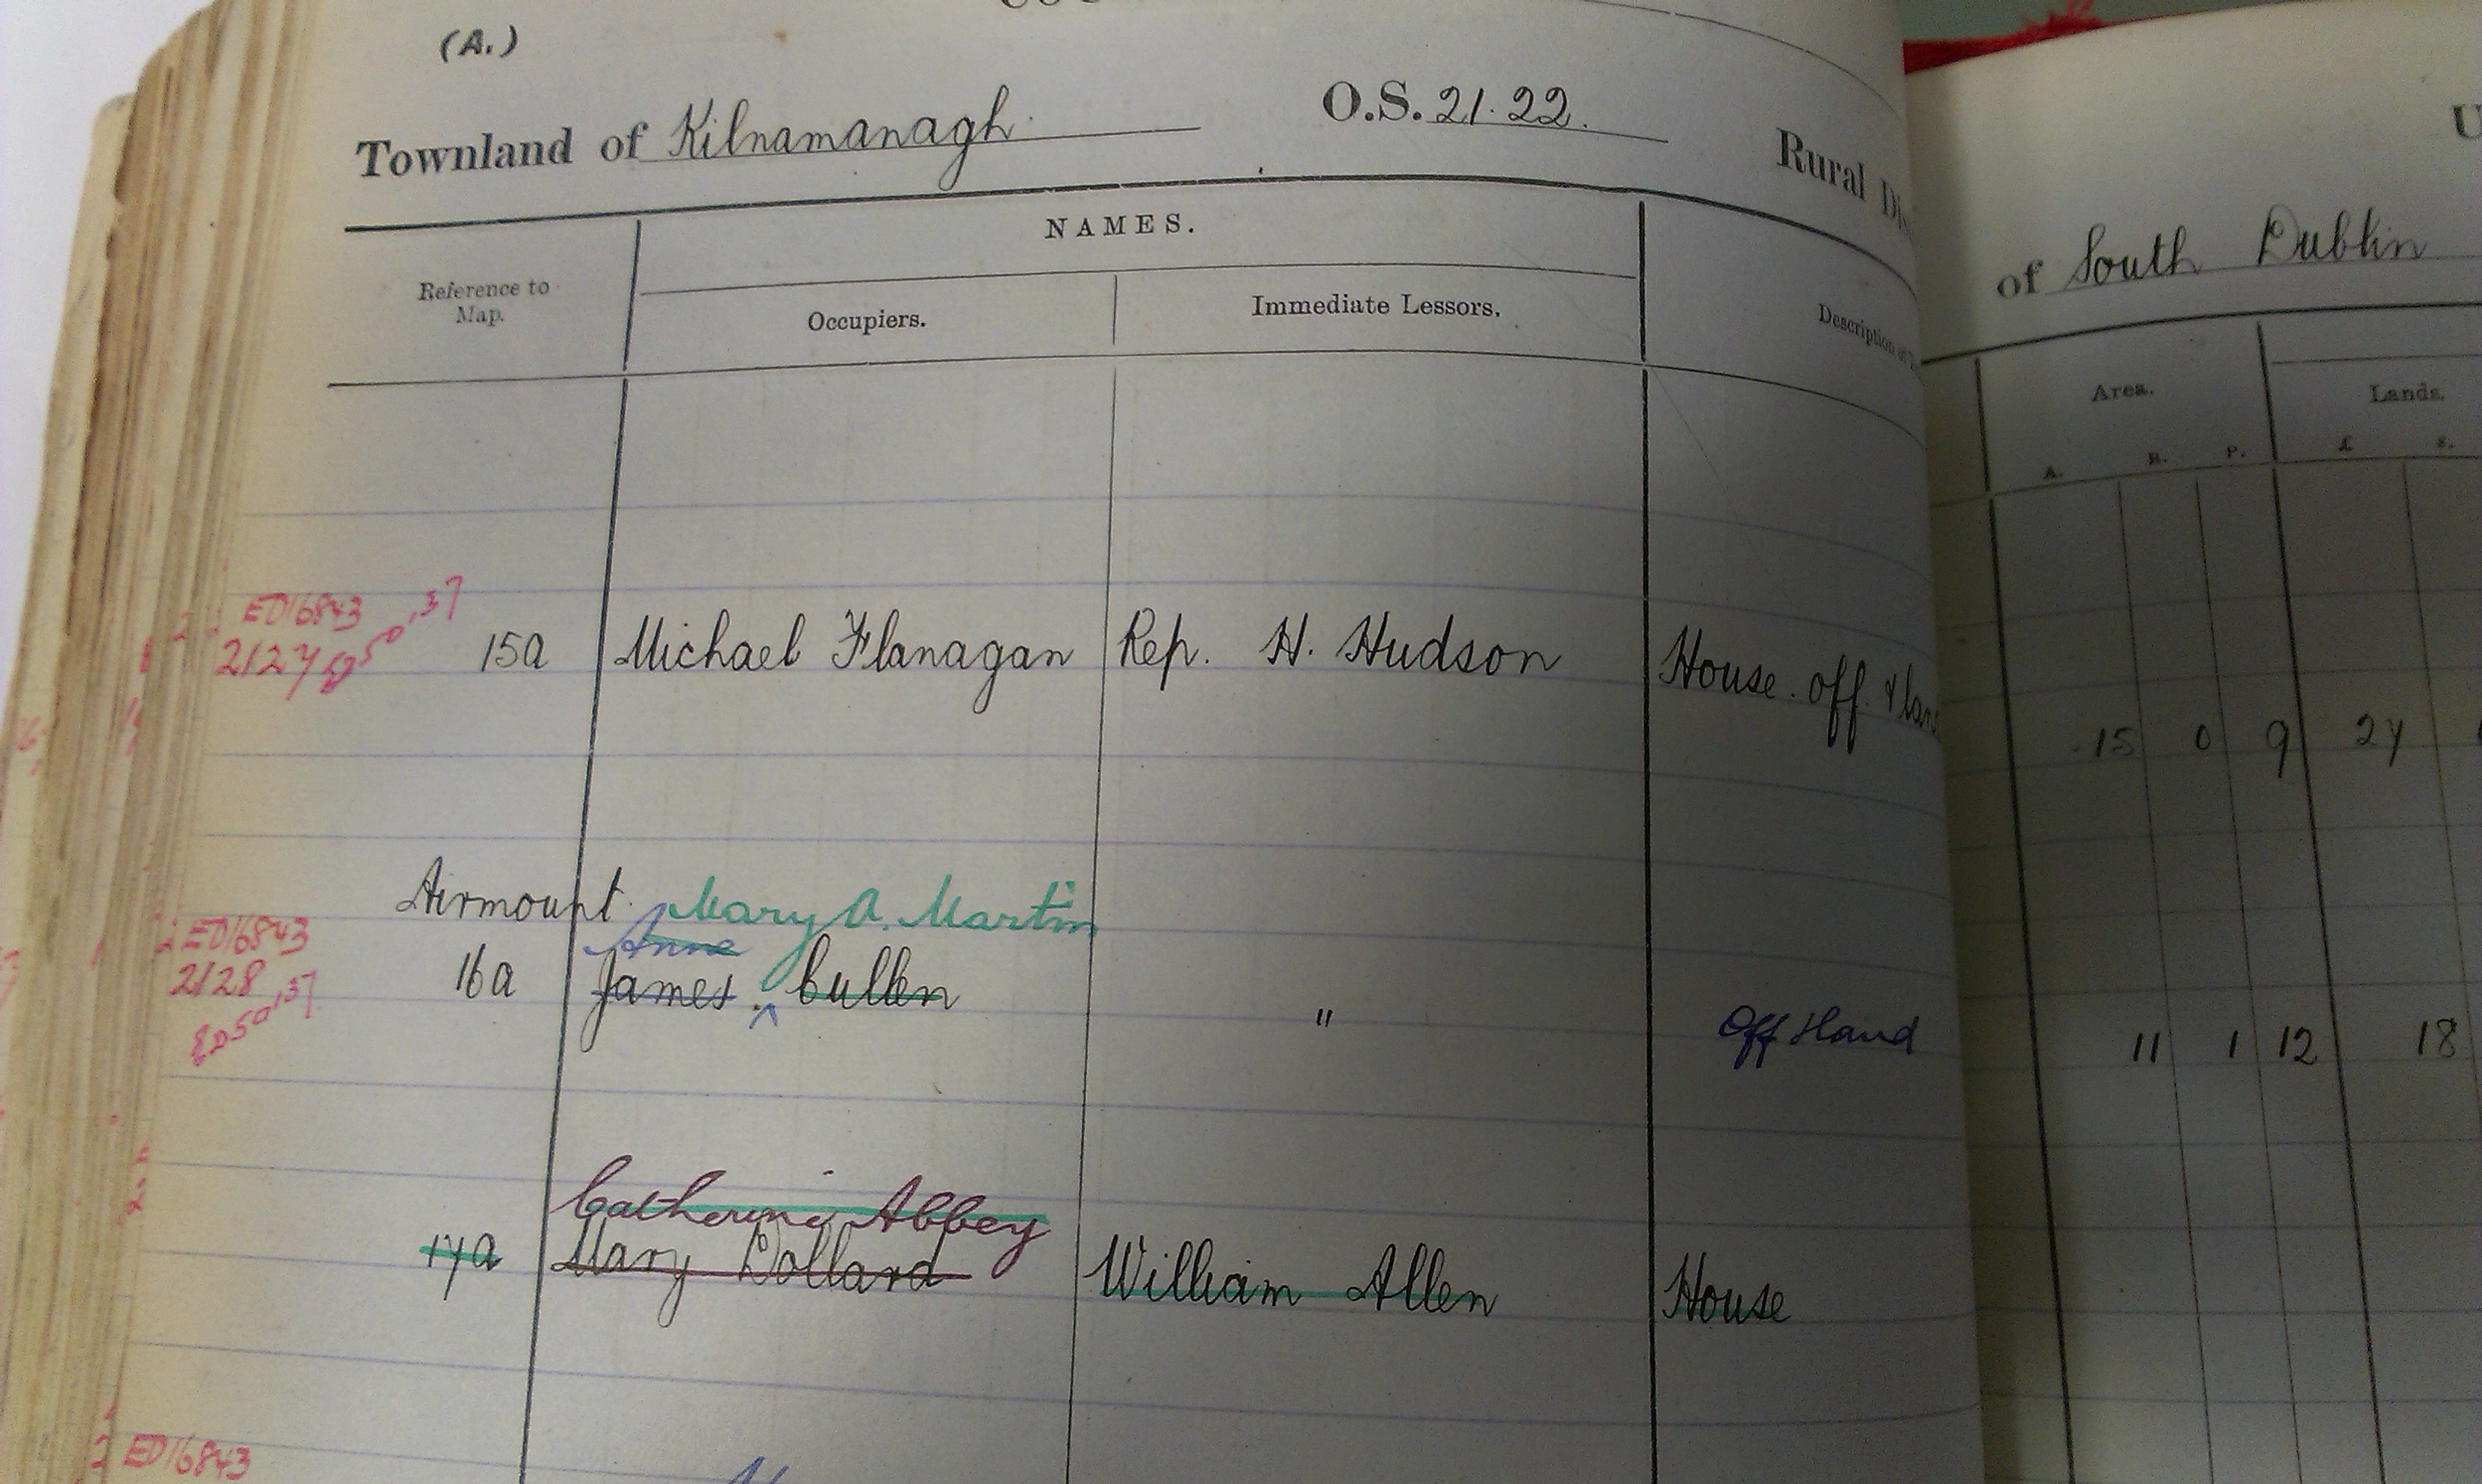 (A.)
Townland of Kilnamanagh. O.S. 21.22.
Rural
of South Dublin
NAMES.
Reference to Map.
Occupiers.
Immediate Lessors.
Description of
Area.
Lands.
A. R. P. £ s.
ED16843
2127
ED50,37
15a Michael Flanagan Rep. H. Hudson House. off. & 15 0 9 27
Airmount. Mary A. Martin
Anne
ED16843
2128
ED50,37
16a James. ^ Cullen " Off & land 11 1 12 18
Catherine Abbey
17a Mary Dollard William Allen House
ED16843